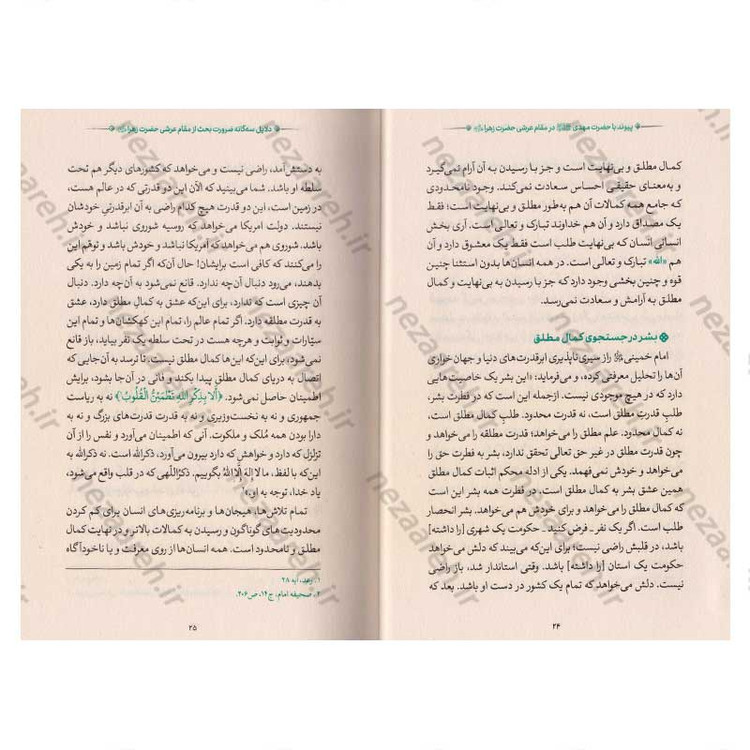 پیوند با حضرت مهدی در مقام عرشی حضرت زهرا
کمال مطلق و بی‌نهایت است و جز با رسیدن به آن آرام نمی‌گیرد
و به‌معنای حقیقی احساس سعادت نمی‌کند. وجود نامحدودی
که جامع همه کمالات آن هم به‌طور مطلق و بی‌نهایت است؛ فقط
یک مصداق دارد و آن هم خداوند تبارک و تعالی است. آری بخش
انسانی انسان که بی‌نهایت طلب است فقط یک معشوق دارد و آن
هم «الله» تبارک و تعالی است. در همه انسان‌ها بدون استثنا چنین
قوه و چنین بخشی وجود دارد که جز با رسیدن به بی‌نهایت و کمال
مطلق به آرامش و سعادت نمی‌رسد.
بشر در جستجوی کمال مطلق
امام خمینی راز سیری‌ناپذیری ابرقدرت‌های دنیا و جهان خواری
آن‌ها را تحلیل معرفتی کرده، و می‌فرماید: «این بشر یک خاصیت‌هایی
دارد که در هیچ موجودی نیست. ازجمله این است که در فطرت بشر،
طلبِ قدرتِ مطلق است، نه قدرت محدود. طلبِ کمال مطلق است،
نه کمال محدود. علم مطلق را می‌خواهد؛ قدرت مطلقه را می‌خواهد و
چون قدرت مطلق در غیر حق تعالی تحقق ندارد، بشر به فطرت حق را
می‌خواهد و خودش نمی‌فهمد. یکی از ادله محکم اثبات کمال مطلق
همین عشق بشر به کمال مطلق است. در فطرت همه بشر این است
که کمال مطلق را می‌خواهد و برای خودش هم می‌خواهد. بشر انحصار
طلب است. اگر یک نفر ـ فرض کنید ـ حکومت یک شهری [را داشته]
باشد، در قلبش راضی نیست؛ برای این‌که می‌بیند که دلش می‌خواهد
حکومت یک استان [را داشته] باشد. وقتی استاندار شد، باز راضی
نیست. دلش می‌خواهد که تمام یک کشور در دست او باشد. بعد که
۲۴
دلایل سه‌گانه ضرورت بحث از مقام عرشی حضرت زهرا
به دستش آمد، راضی نیست و می‌خواهد که کشورهای دیگر هم تحت
سلطه او باشد. شما می‌بینید که الآن این دو قدرتی که در عالم هست،
در زمین است، این دو قدرت هیچ کدام راضی به آن ابرقدرتیِ خودشان
نیستند. دولت امریکا می‌خواهد که روسیه شوروی نباشد و خودش
باشد. شوروی هم می‌خواهد که آمریکا نباشد و خودش باشد و توهم این
را می‌کنند که کافی است برایشان! حال آن‌که اگر تمام زمین را به یکی
بدهند، می‌رود دنبال آن‌چه ندارد. قانع نمی‌شود به آن‌چه دارد. دنبال
آن چیزی است که ندارد، برای این‌که عشق به کمال مطلق دارد، عشق
به قدرت مطلقه دارد. اگر تمام عالم را، تمام این کهکشان‌ها و تمام این
سیّارات و ثوابت و هرچه هست در تحت سلطه یک نفر بیاید، باز قانع
نمی‌شود، برای این‌که این‌ها کمال مطلق نیست. تا نرسد به آن‌جایی که
اتصال به دریای کمال مطلق پیدا بکند و فانی در آن‌جا بشود، برایش
اطمینان حاصل نمی‌شود. ﴿أَلا بِذِكْرِ اللهِ تَطْمَئِنُّ الْقُلُوبُ﴾ نه به ریاست
جمهوری و نه به نخست‌وزیری و نه به قدرت قدرت‌های بزرگ و نه به
دارا بودن همه مُلک و ملکوت. آنی که اطمینان می‌آورد و نفس را از آن
تزلزل که دارد و خواهشی که دارد بیرون می‌آورد، ذکرالله است. نه ذکرالله به
این‌که با لفظ، ما لا إِلهَ إِلَّا اللهُ بگوییم. ذکرُاللَّهی که در قلب واقع می‌شود،
یاد خدا، توجه به او.»
تمام تلاش‌ها، هیجان‌ها و برنامه‌ریزی‌های انسان برای کم کردن
محدودیت‌های گوناگون و رسیدن به کمالات بالاتر و در نهایت کمال
مطلق و نامحدود است. همه انسان‌ها از روی معرفت و یا ناخودآگاه
۱. رعد، آیه ۲۸
۲. صحیفه امام، ج۱۴، ص۲۰۶.
۲۵
nezaareh.ir